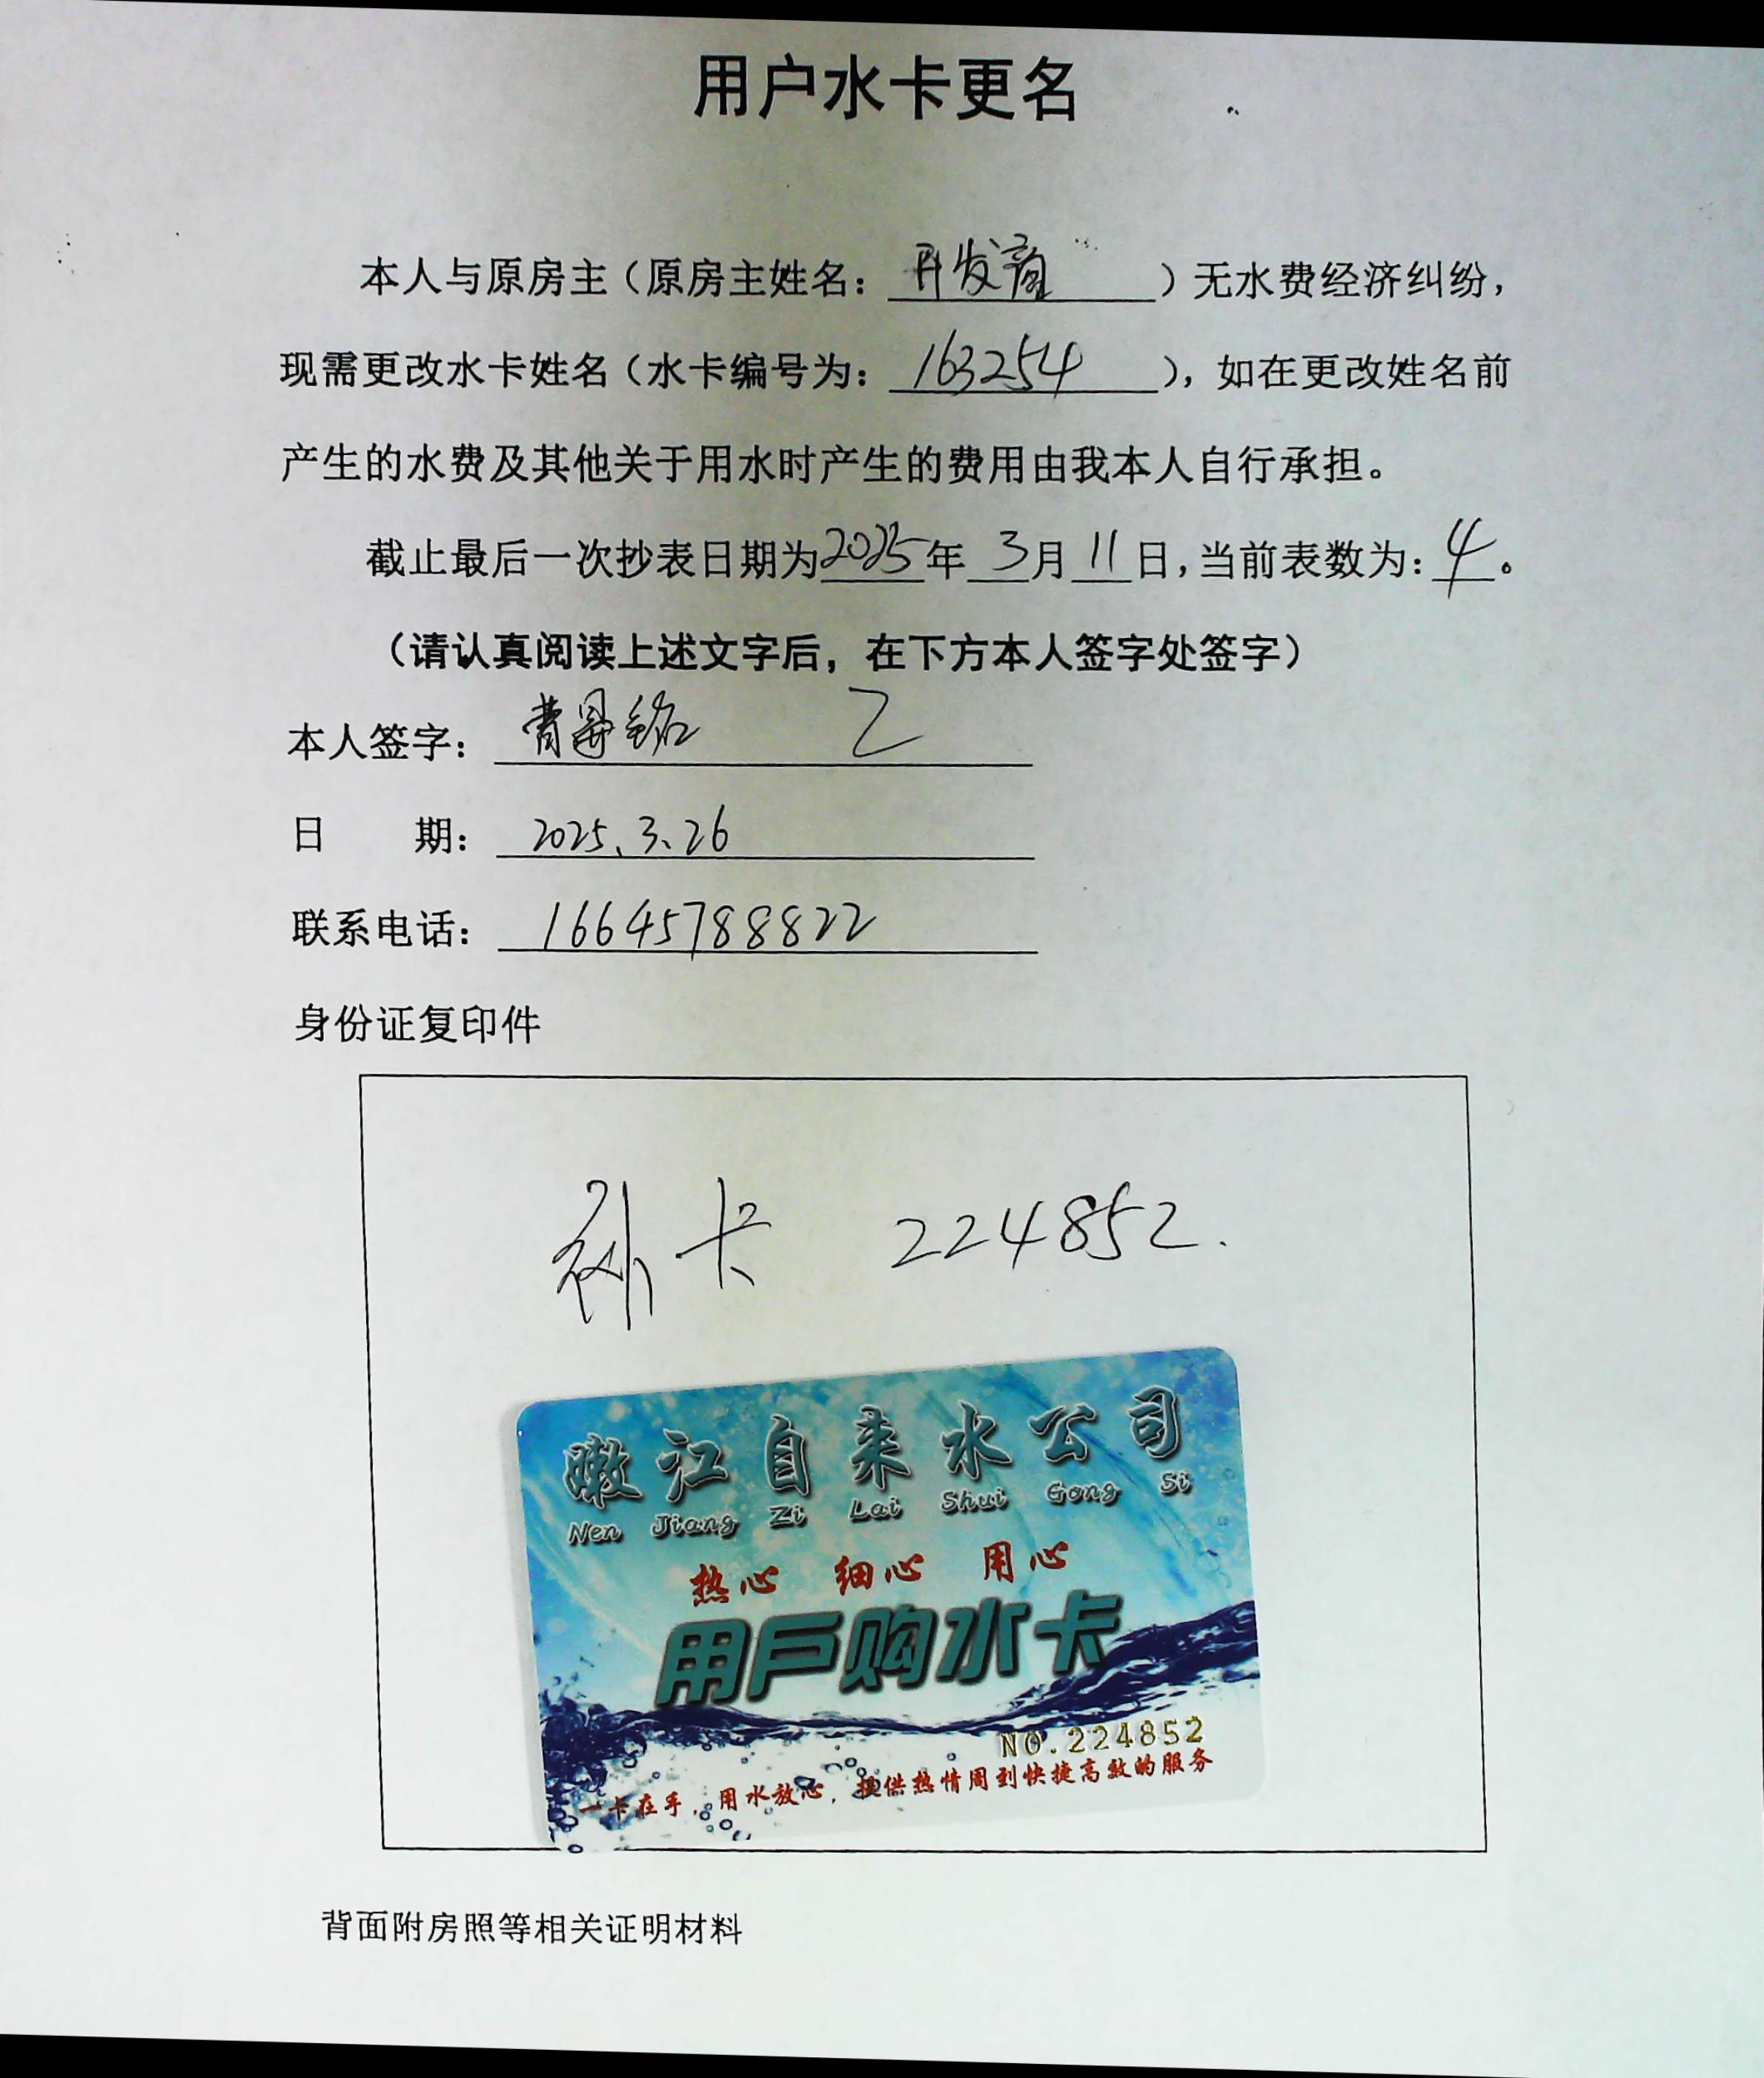 用户水卡更名
本人与原房主（原房主姓名：开发商）无水费经济纠纷，
现需更改水卡姓名（水卡编号为：163254），如在更改姓名前
产生的水费及其他关于用水时产生的费用由我本人自行承担。
截止最后一次抄表日期为2025年3月11日，当前表数为：4。
（请认真阅读上述文字后，在下方本人签字处签字）
本人签字：
日 期：2025、3、26
联系电话：16645788822
身份证复印件
补卡 224852.
嫩江自来水公司
Nen Jiang Zi Lai Shui Gong Si
热心 细心 用心
用户购水卡
NO.224852
一卡在手，用水放心，提供热情周到快捷高效的服务
背面附房照等相关证明材料